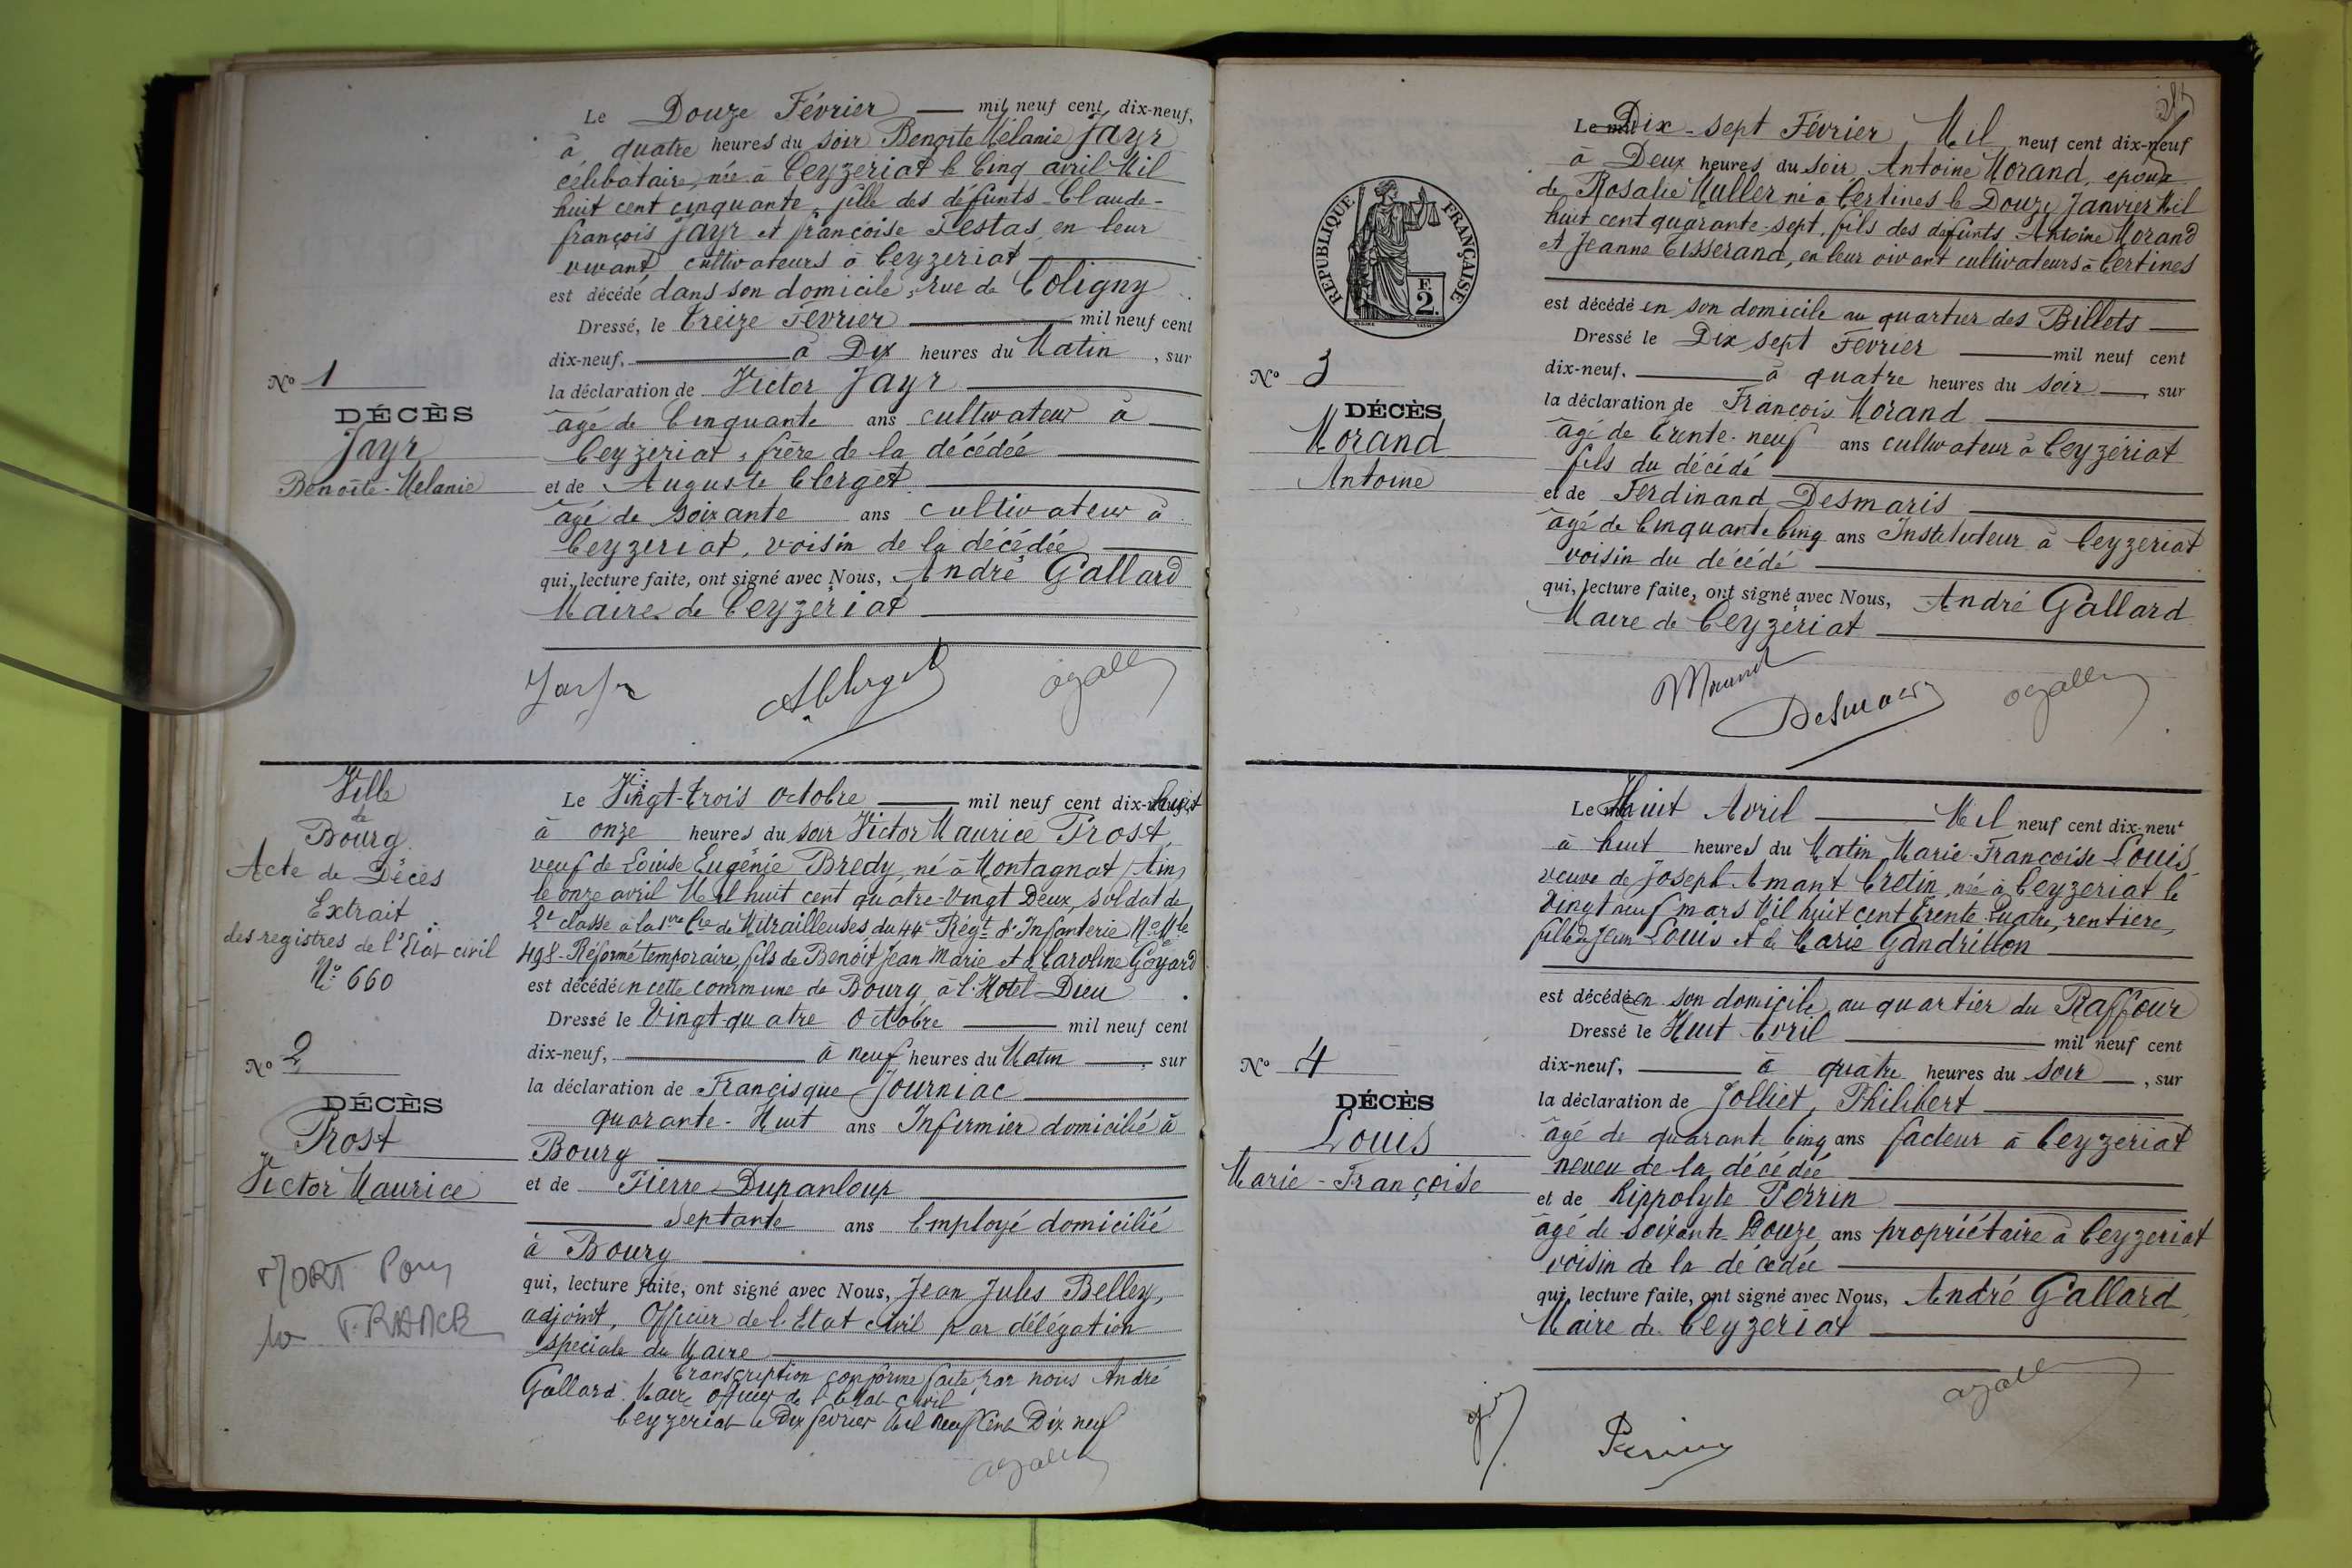 Le Douze Février mil neuf cent dix-neuf,
à quatre heures du soir Benoîte Mélanie Jayr
célibataire, née à Ceyzeriat le Cinq avril Mil
huit cent cinquante, fille des défunts Claude-
françois Jayr et françoise Testas, en leur
vivant cultivateurs à Ceyzeriat
est décédé dans son domicile, rue de Coligny
Dressé, le Treize Février mil neuf cent
dix-neuf, à Dix heures du Matin, sur
la déclaration de Victor Jayr
âgé de Cinquante ans cultivateur à
Ceyzériat, frère de la décédée
et de Auguste Clerget
âgé de soixante ans cultivateur à
Ceyzeriat, voisin de la décédée
qui, lecture faite, ont signé avec Nous, André Gallard
Maire de Ceyzériat
No 1
DÉCÈS
Jayr
Benoîte-Mélanie
Ville
de
Bourg
Acte de Décès
Extrait
des registres de l'Etat civil
No 660
No 2
DÉCÈS
Prost
Victor Maurice
MORT Pour
la FRANCE
Le Vingt-trois octobre mil neuf cent dix-huit
à onze heures du soir Victor Maurice Prost,
veuf de Louise Eugénie Bredy, né à Montagnat (Ain)
le onze avril Mil huit cent quatre-vingt Deux, soldat de
2e classe à la 1re Cie de Mitrailleuses du 44e Régt d'Infanterie No Mle
498 - Réformé temporaire, fils de Benoit Jean Marie et de Caroline Goyard
est décédé en cette commune de Bourg à l'Hotel Dieu
Dressé le Vingt-quatre Octobre mil neuf cent
dix-neuf, à neuf heures du Matin, sur
la déclaration de Francisque Journiac
quarante-Huit ans Infirmier domicilié à
Bourg
et de Pierre Dupanloup
Septante ans Employé domicilié
à Bourg
qui, lecture faite, ont signé avec Nous, Jean Jules Belley,
adjoint, Officier de l'Etat civil par délégation
spéciale du Maire
Transcription conforme faite par nous André
Gallard Maire officier de l'Etat civil
Ceyzeriat le Dix février Mil neuf Cent Dix neuf
RÉPUBLIQUE FRANÇAISE
F.
2.
No 3
DÉCÈS
Morand
Antoine
Le Dix-sept Février Mil neuf cent dix-neuf
à Deux heures du soir Antoine Morand, époux
de Rosalie Muller né à Certines le Douze Janvier Mil
huit cent quarante-sept, fils des défunts Antoine Morand
et Jeanne Tisserand, en leur vivant cultivateurs à Certines
est décédé en son domicile au quartier des Billets
Dressé le Dix sept Février mil neuf cent
dix-neuf, à quatre heures du soir, sur
la déclaration de François Morand
âgé de trente-neuf ans cultivateur à Ceyzériat
fils du décédé
et de Ferdinand Desmaris
âgé de Cinquante Cinq ans Instituteur à Ceyzeriat
voisin du décédé
qui, lecture faite, ont signé avec Nous, André Gallard
Maire de Ceyzériat
Morand
Desmaris
Le Huit Avril Mil neuf cent dix-neuf
à huit heures du Matin Marie-Francoise Louis
veuve de Joseph Amant Cretin, née à Ceyzeriat le
Vingt neuf mars Mil huit cent trente Quatre, rentière,
fille de Jean Louis et de Marie Gandrillon
est décédé en son domicile, au quartier du Raffour
Dressé le Huit Avril mil neuf cent
dix-neuf, à quatre heures du soir, sur
la déclaration de Jolliet, Philibert
âgé de quarante Cinq ans facteur à Ceyzériat
neveu de la décédée
et de hippolyte Perrin
âgé de soixante Douze ans propriétaire à Ceyzeriat
voisin de la décédée
qui, lecture faite, ont signé avec Nous, André Gallard
Maire de Ceyzeriat
No 4
DÉCÈS
Louis
Marie-Françoise
Perrin